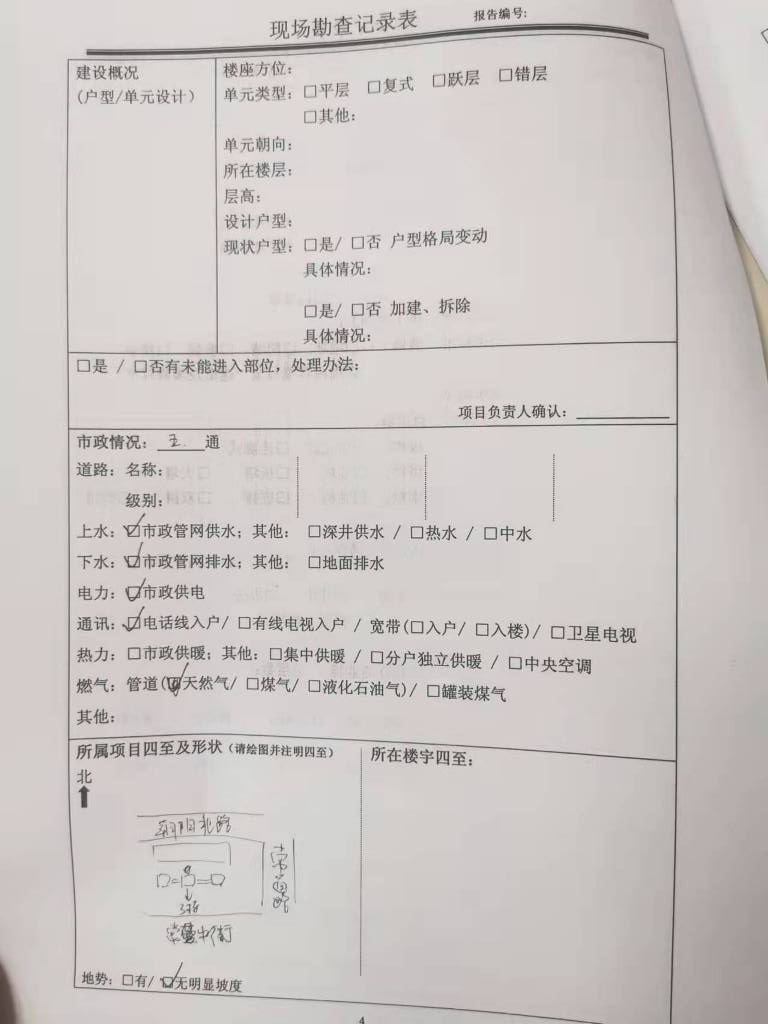 现场勘查记录表
报告编号:
建设概况
(户型/单元设计)
楼座方位:
单元类型: □平层 □复式 □跃层 □错层
□其他:
单元朝向:
所在楼层:
层高:
设计户型:
现状户型: □是/ □否 户型格局变动
具体情况:
□是/ □否 加建、拆除
具体情况:
□是 / □否有未能进入部位, 处理办法:
项目负责人确认:
市政情况: 五. 通
道路: 名称:
级别:
上水: ☑市政管网供水; 其他: □深井供水 / □热水 / □中水
下水: ☑市政管网排水; 其他: □地面排水
电力: ☑市政供电
通讯: ☑电话线入户/ □有线电视入户 / 宽带(□入户/ □入楼)/ □卫星电视
热力: □市政供暖; 其他: □集中供暖 / □分户独立供暖 / □中央空调
燃气: 管道(☑天然气/ □煤气/ □液化石油气)/ □罐装煤气
其他:
所属项目四至及形状 (请绘图并注明四至)
所在楼宇四至:
北
朝阳北路
地势: □有/ ☑无明显坡度
4